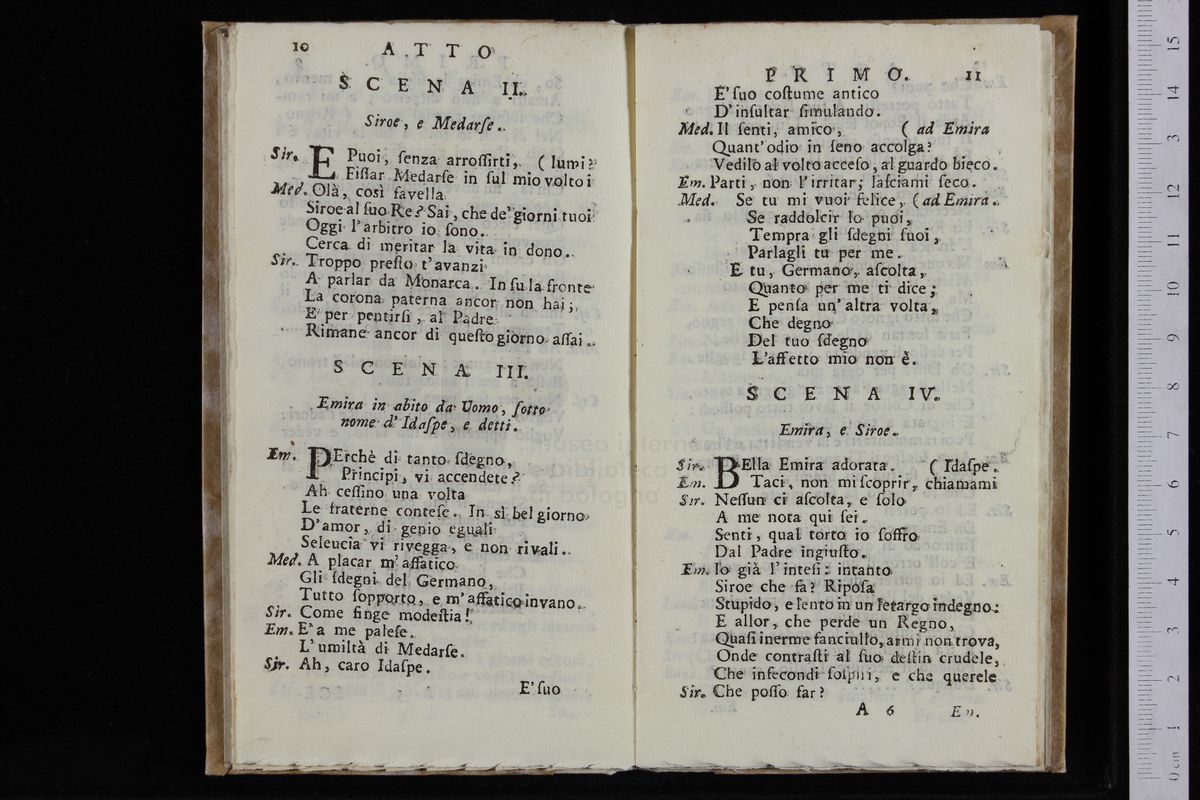 10
ATTO
SCENA II.
Siroe, e Medarſe.
Sir. E Puoi, ſenza arroſſirti, ( lumi?
Fiſſar Medarſe in ſul mio volto i
Med. Olà, così favella
Siroe al ſuo Re? Sai, che de' giorni tuoi
Oggi l'arbitro io ſono.
Cerca di meritar la vita in dono.
Sir. Troppo preſto t'avanzi
A parlar da Monarca. In ſu la fronte
La corona paterna ancor non hai;
E per pentirſi, al Padre
Rimane ancor di queſto giorno aſſai.
SCENA III.
Emira in abito da Uomo, ſotto
nome d' Idaſpe, e detti.
Em. PErchè di tanto ſdegno,
Principi, vi accendete?
Ah ceſſino una volta
Le fraterne conteſe. In sì bel giorno
D'amor, di genio eguali
Seleucia vi rivegga, e non rivali.
Med. A placar m'affatico
Gli ſdegni del Germano,
Tutto ſopporto, e m'affatico invano.
Sir. Come finge modeſtia!
Em. E' a me paleſe
L'umiltà di Medarſe.
Sir. Ah, caro Idaſpe.
E' ſuo
PRIMO.
11
E' ſuo coſtume antico
D'inſultar ſimulando.
Med. Il ſenti, amico, ( ad Emira
Quant'odio in ſeno accolga?
Vedilo al volto acceſo, al guardo bieco.
Em. Parti, non l'irritar; laſciami ſeco.
Med. Se tu mi vuoi felice, ( ad Emira.
Se raddolcir lo puoi,
Tempra gli ſdegni ſuoi,
Parlagli tu per me.
E tu, Germano, aſcolta,
Quanto per me ti dice;
E penſa un' altra volta,
Che degno
Del tuo ſdegno
L'affetto mio non è.
SCENA IV.
Emira, e Siroe.
Sir. BElla Emira adorata. ( Idaſpe.
Em. Taci, non mi ſcoprir, chiamami
Sir. Neſſun ci aſcolta, e ſolo
A me nota qui ſei.
Senti, qual torto io ſoffro
Dal Padre ingiuſto.
Em. Io già l'inteſi: intanto
Siroe che fa? Ripoſa
Stupido, e lento in un letargo indegno:
E allor, che perde un Regno,
Quaſi inerme fanciullo, armi non trova,
Onde contraſti al ſuo deſtin crudele,
Che infecondi ſoſpiri, e che querele
Sir. Che poſſo far?
A 6
Em.